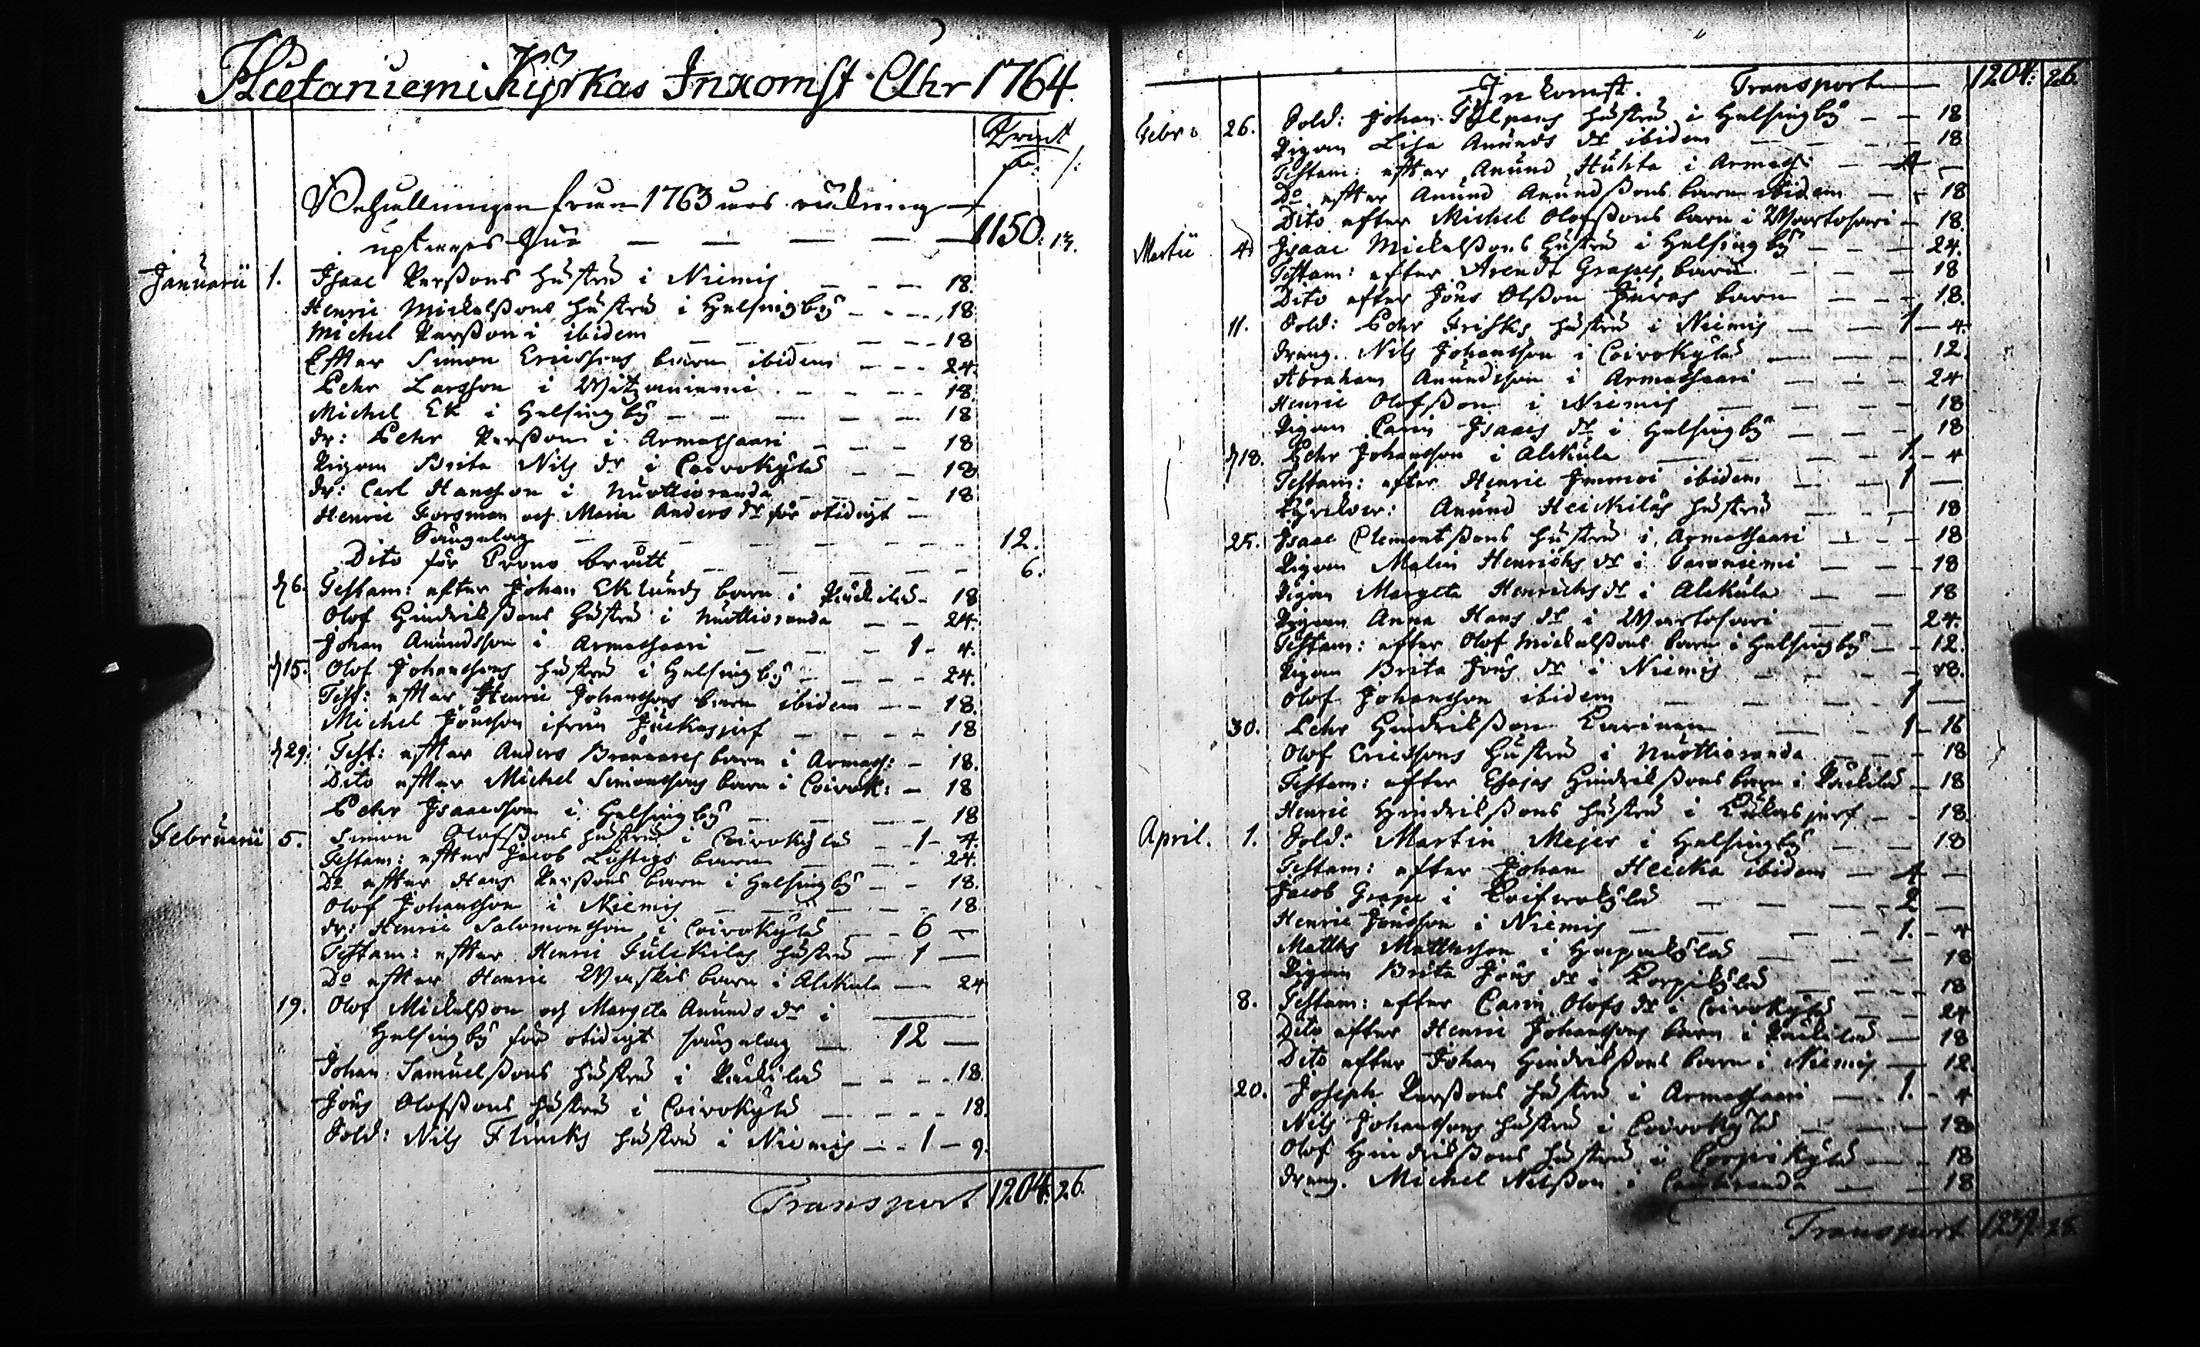 Hietaniemi Kyrkas Inkomst Åhr 1764.
Behållningen från 1763 års räkning
uptages här — — — — — 1150. 13.
Januarii 1. Isaac Perssons hustru i Niemis — — — 18.
Henric Mickelssons hustru i Helsingby — — — 18
Michel Persson i ibidem — — — 18
Efter Simon Ericssons barn ibidem — — — 24.
Pehr Larsson i Witzaniemi — — — 18
Michel Ek i Helsingby — — — 18
dr: Pehr Persson i Armassaari — — — 18
Pigan Brita Nils dr i Coivokylä — — 18
dr: Carl Hansson i Nuottioranda — — 18
Henric Forsman och Maria Anders dr för otidigt —
Sängelag — — — 12.
Dito för brott — — — 6.
6. Testam: efter Johan Eklunds barn i Päckilä — 18
Olof Hindrikssons hustru i Nuottioranda — — 24.
Johan Anundsson i Armassaari — — — 1 - 4.
15. Olof Johanssons hustru i Helsingby — — — 24.
Test: efter Henric Johanssons barn ibidem — — 18.
Michel Jönsson ifrån Juckasjerf — — — 18
29. Test: efter Anders barn i Armass: — 18.
Dito efter Michel Simonssons barn i Coivok: — 18
Pehr Isaacsson i Helsingby — — — 18
Februarii 5. Simon Olofssons hustru i Coivokylä — 1 - 4.
Testam: efter Jacob Lustigs barn — — — 24.
Do efter Hans Perssons barn i Helsingby — — 18.
Olof Johansson i Niemis — — — 18
dr: Henric Salomonsson i Coivokylä — — 6 —
Testam: efter Henric hustru — 1 —
Do efter Henric barn i Alkula — 24
19. Olof Mickelsson och Margeta Anunds dr i
Helsingby för otidigt sängelag — 12 —
Johan Samuelssons hustru i Päckilä — — — 18.
Jöns Olofssons hustru i Coivokylä — — — 18.
Sold: Nils Flincks hustru i Niemis — — 1 - 9.
Transport 1204. 26.
Inkomst. Transport — 1204. 26.
Febr: 26. Sold: Johan hustru i Helsingby — — 18
Pigan Lisa Anunds dr ibidem — — — 18
Testam: efter Anund Huhta i Armass: — 4 —
Do efter Anund Anundssons barn ibidem — — 18
Dito efter Michel Olofssons barn i Wartosari — 18.
Martii 4. Isaac Mickelssons hustru i Helsingby — — — 24.
Testam: efter Arendt Grapes barn — — — 18
Dito efter Jöns Olsson barn — — — 18.
11. Sold: Pehr Frisks hustru i Niemis — — 1 - 4.
dräng. Nils Johansson i Coivokylä — — — 12.
Abraham Anundsson i Armassaari — — — 24
Henric Olofsson i Niemis — — — 18
Pigan Carin Isaacs dr i Helsingby — — — 18
18. Pehr Johansson i Alkula — — — 1. - 4
Testam: efter Henric ibidem — — 1 —
Kyrckvär: Anund Heickiläs hustru — — — 18
25. Isaac Clementssons hustru i Armassaari — — — 18
Pigan Malin Henrichs dr i — — — 18
Pigan Margeta Henrichs dr i Alkula — — 18
Pigan Anna Hans dr i Wartosari — — — 24.
Testam: efter Olof Mickelssons barn i Helsingby — — 12.
Pigan Brita Jöns dr i Niemis — — — 18.
Olof Johansson ibidem — — — 1 —
30. Pehr Hindriksson — — — 1 - 16
Olof Ericssons hustru i Nuottioranda — — 18
Testam: efter Esaias Hindrikssons barn i Päckilä — 18
Henric Hindrikssons hustru i — — 18.
April. 1. Sold: Martin Mejer i Helsingby — — 18
Testam: efter Johan Heicka ibidem — 4 —
Jacob Grape i — — — 2 —
Henric Jönsson i Niemis — — — 1. - 4
Matths Matthsson i Haapakylä — — — 18
Pigan Brita Jöns dr i Korpikylä — — — 18
8. Testam: efter Carin Olofs dr i Coivokylä — — 24
Dito efter Henric Johanssons barn i Päckilä — 18
Dito efter Johan Hindrikssons barn i Niemis — 12.
20. Joseph Perssons hustru i Armassaari — — 1. - 4
Nils Johanssons hustru i Coivokylä — — — 18
Olof Hindrikssons hustru i Corpikylä — — 18
dräng. Michel Nilsson i — — 18
Transport 1239. 28.